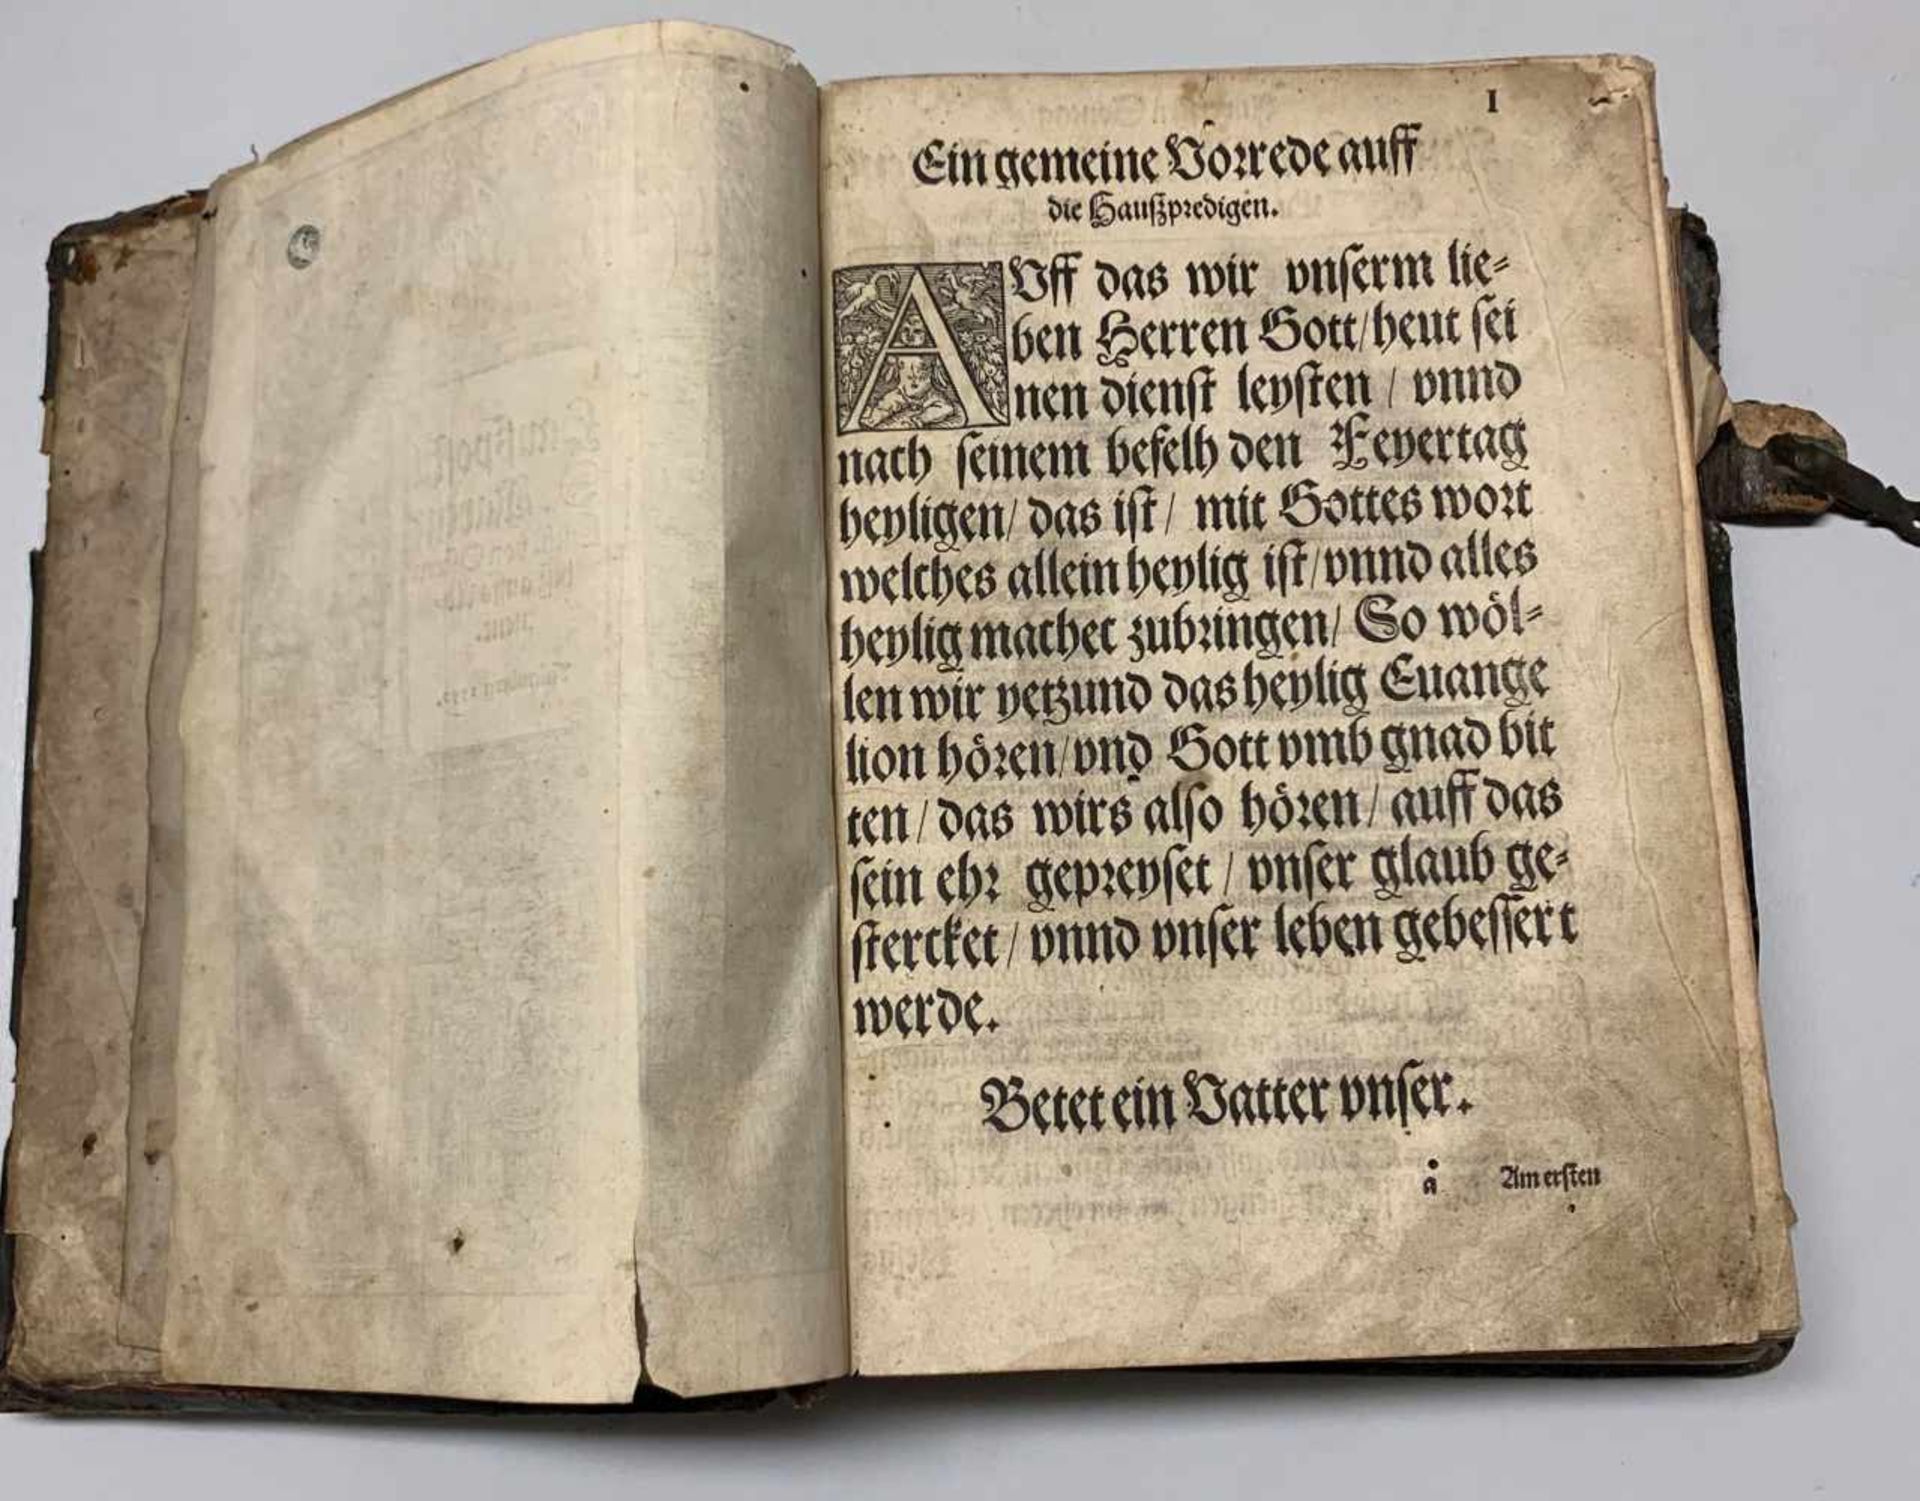 I
Ein gemeine Vorrede auff
die Haußpredigen.
AVff das wir vnserm lie⸗
ben Herren Gott/heut sei
nen dienst leysten / vnnd
nach seinem befelh den Feyertag
heyligen/ das ist/ mit Gottes wort
welches allein heylig ist/vnnd alles
heylig machet zubringen/ So wöl⸗
len wir yetzund das heylig Euange
lion hören/vnd Gott vmb gnad bit
ten/das wirs also hören/ auff das
sein ehr gepreyset / vnser glaub ge⸗
stercket/vnnd vnser leben gebessert
werde.
Betet ein Vatter vnser.
å Am ersten